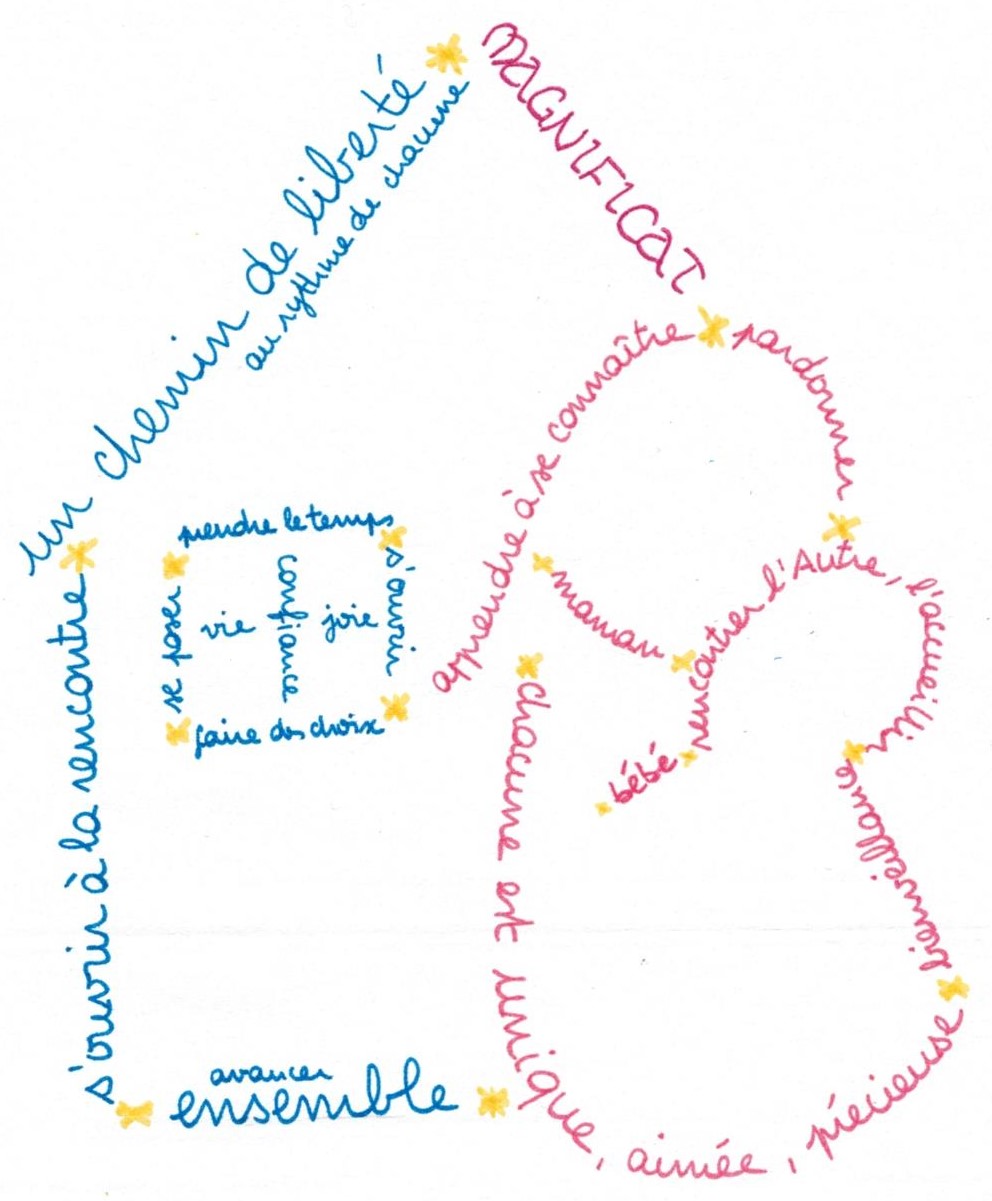 MAGNIFICAT
un chemin de liberté
au rythme de chacune
s'ouvrir à la rencontre
prendre le temps
se poser
vie
confiance
joie
s'ouvrir
faire des choix
avancer
ensemble
apprendre à se connaître
pardonner
maman
rencontrer l'Autre, l'accueillir
bébé
bienveillance
chacune est unique, aimée, précieuse